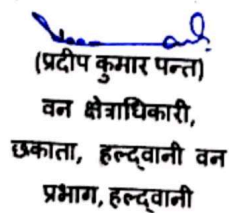 (प्रदीप कुमार पन्त)
वन क्षेत्राधिकारी,
छकाता, हल्द्वानी वन
प्रभाग, हल्द्वानी